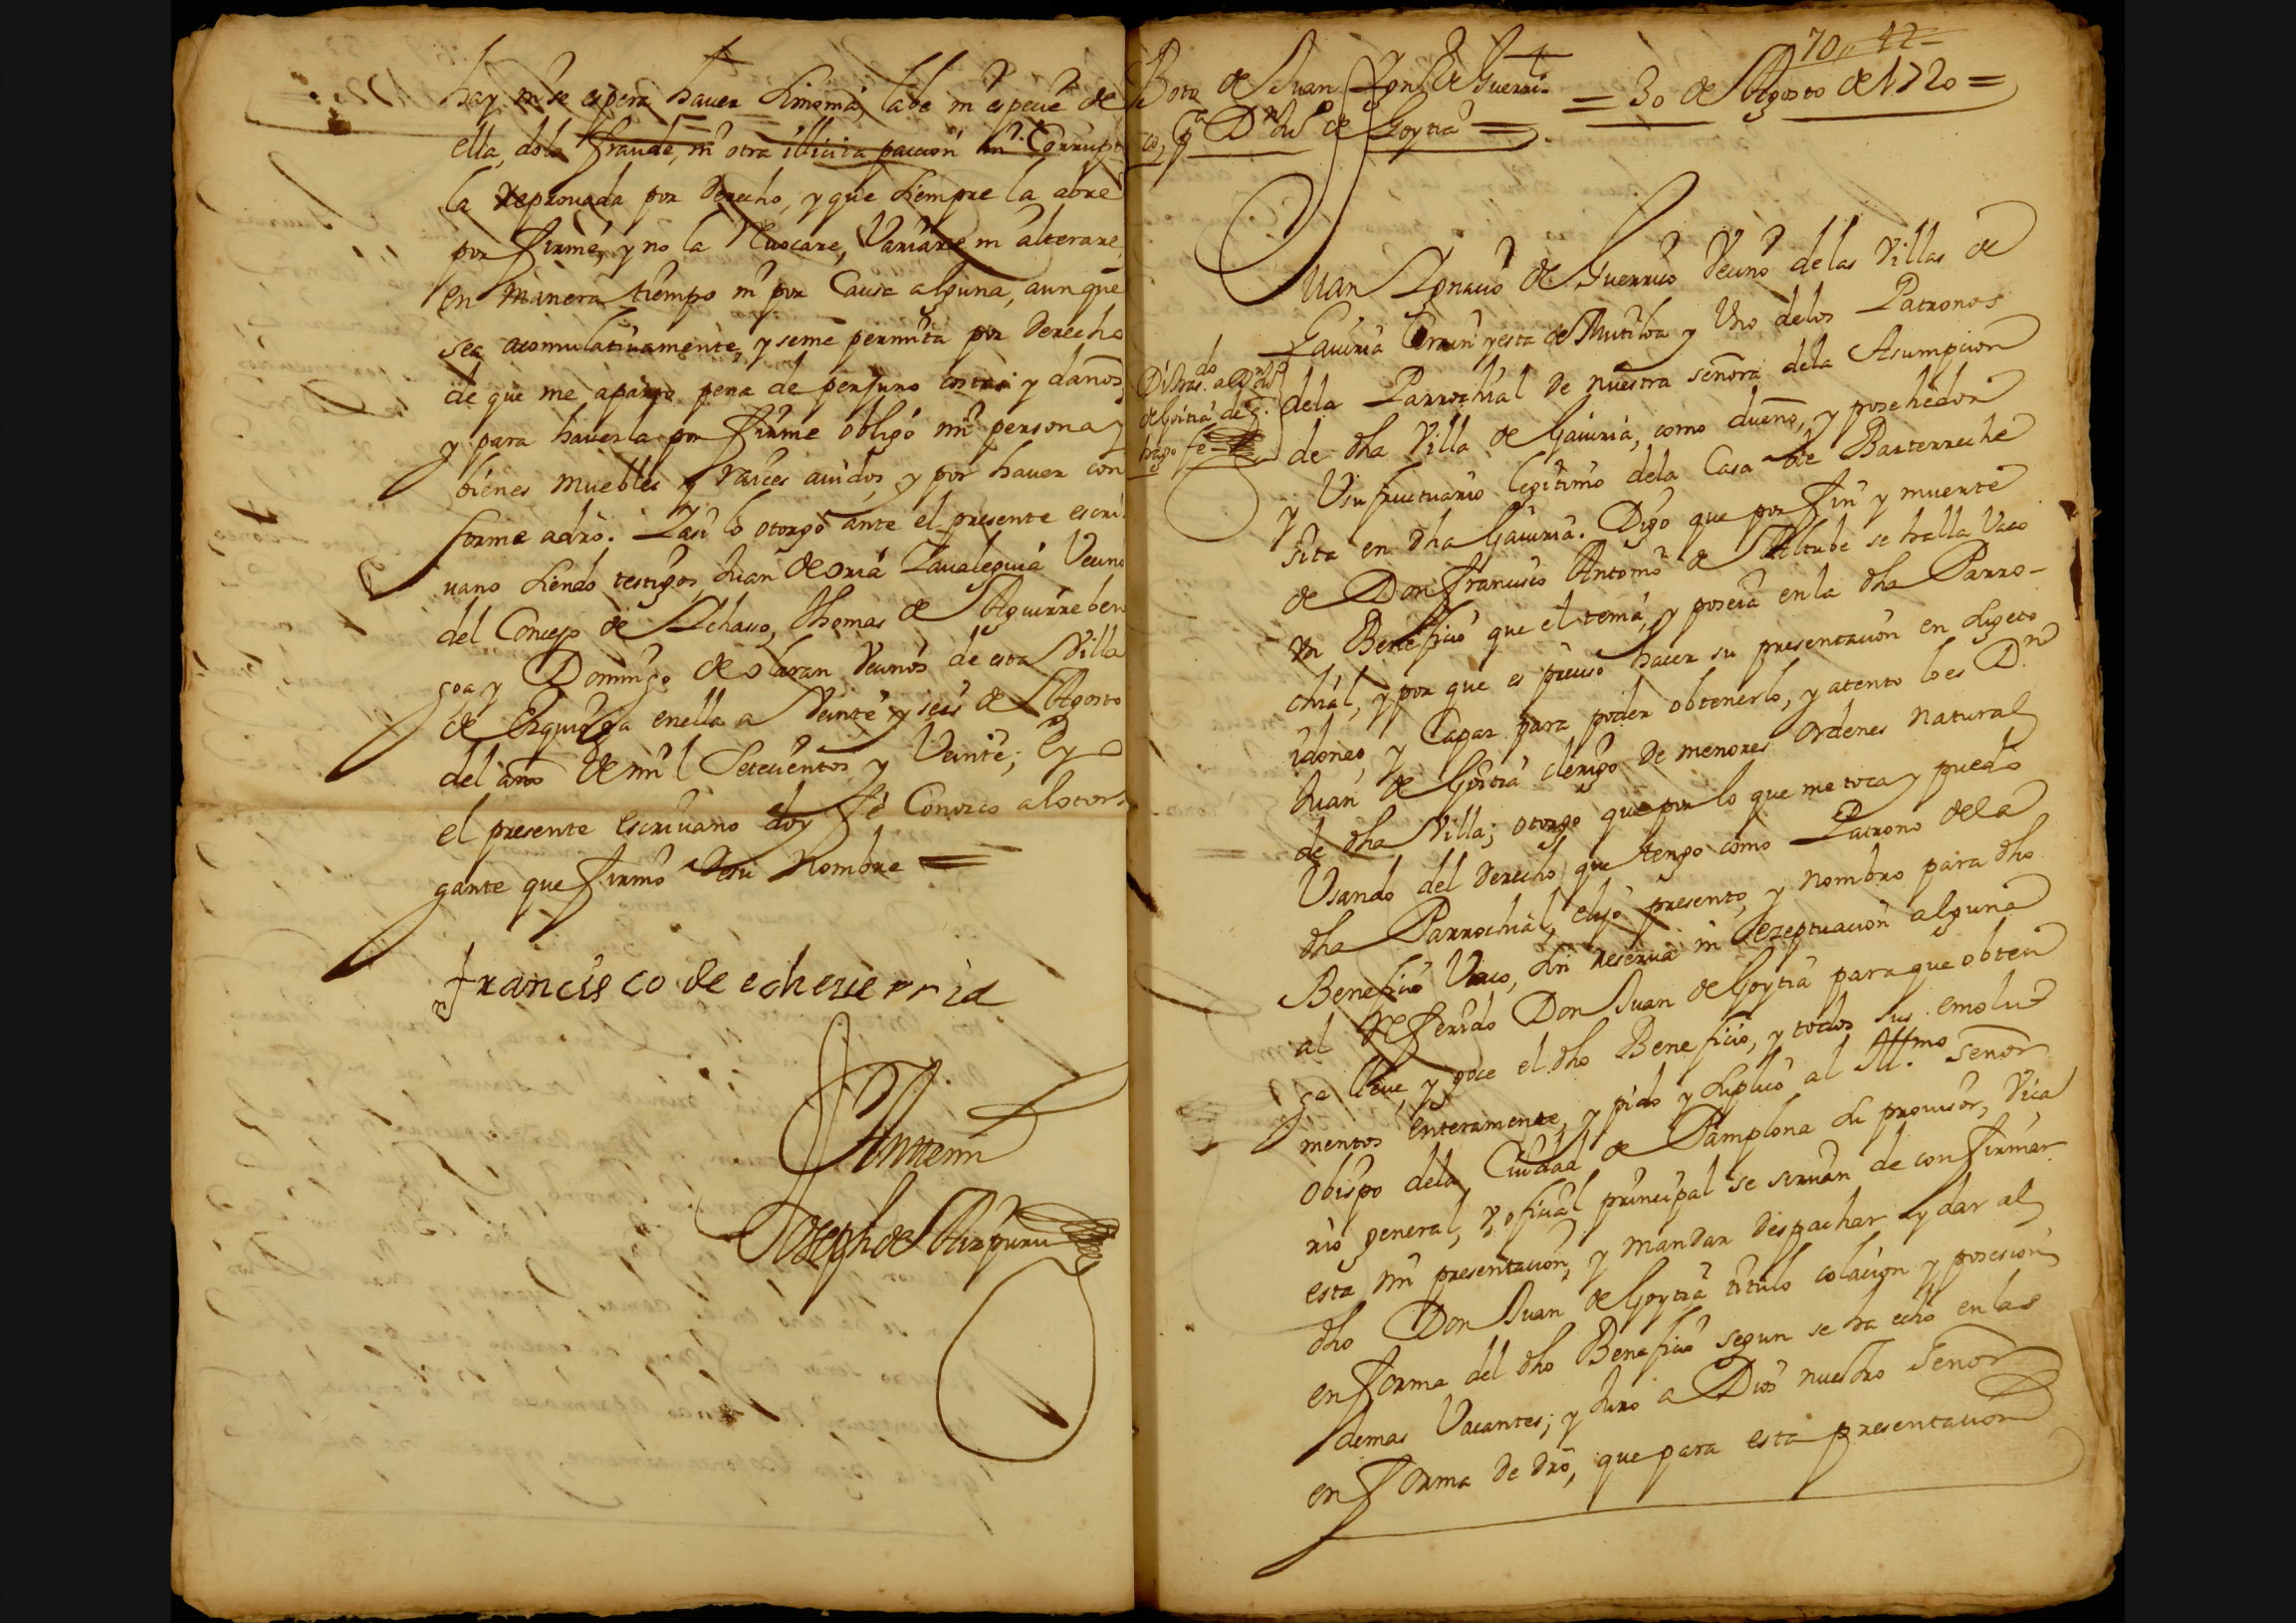 hay ni se espera hauer simonia, labe ni espeçie de
ella, dolo fraude, ni otra illicita paccion ni Corrupte
la reprouada por derecho, y que siempre la abre
por firme, y no la reuocare, Variare ni alterare
en manera tiempo ni por Causa alguna, aunque
sea acomulatiuamente, y seme permita por derecho
de que me aparto pena de perjuro costas y daños
y para hauerla por firme obligo mi persona y
bienes muebles y raices auidos, y por hauer con
forme adro. Yasi lo otorgo ante el presente escri
uano siendo testigos Juan de oria Zaualeguia Vecino
del Concejo de Ichasso, Thomas de Aguirreben
goa y Domingo de olaran Vecinos de esta Villa
de Ezquioga enella a Veinte y seis de Agosto
del año de mil Setecientos y Veinte; Eyo
el presente escriuano doy fe Conozco alotor
gante que firmo desu Nombre =
francisco de echeuerria
Antemi
Joseph de Aizpuru
70,, 42
Vota de Juan Ign.º de Guerri
co, p.ª Dn Juº de Goytia =
= 30 de Agosto de 1720 =
Juan Ignacio de Guerrico Vecino delas Villas de
Gauiria Ormaiz yesta de Mutiloa y Vno delos Patronos
dela Parrochial de nuestra señora dela Asumpcion
de dha Villa de Gauiria, como dueño, y posehedor
y Vsufructuario legitimo dela Casa de Barterreche
sita en dha Gauiria. Digo que por fin y muerte
de Don francisco Antonio de Altube se halla Vaco
Vn Beneficio que el tenia, y poseia en la dha Parro-
chial, y por que es preciso hacer su presentacion en sugeto
idoneo, y Capaz para poder obtenerlo, y atento lo es D.n
Juan de Goitia clerigo de menores ordenes natural
de dha Villa; otorgo que por lo que me toca y puedo
Vsando del derecho que tengo como Patrono dela
dha Parrochial, elijo presento, y nombro para dho
Beneficio Vaco, sin reserua ni ezeptuacion alguna
al referido Don Juan de Goytia para que obten
ga lleue, y goce el dho Beneficio, y todos sus emolu
mentos enteramente, y pido y suplico al Ill.mo señor
obispo dela Ciudad de Pamplona su prouisor, Vica
rio general, y oficial principal se siruan de confirmar
esta mi presentacion, y mandar despachar y dar al
dho Don Juan de Goytia titulo colacion y posesion
en forma del dho Beneficio segun se ha echo en las
demas Vacantes; y Juro a Dios nuestro señor
en forma de dro, que para esta presentacion